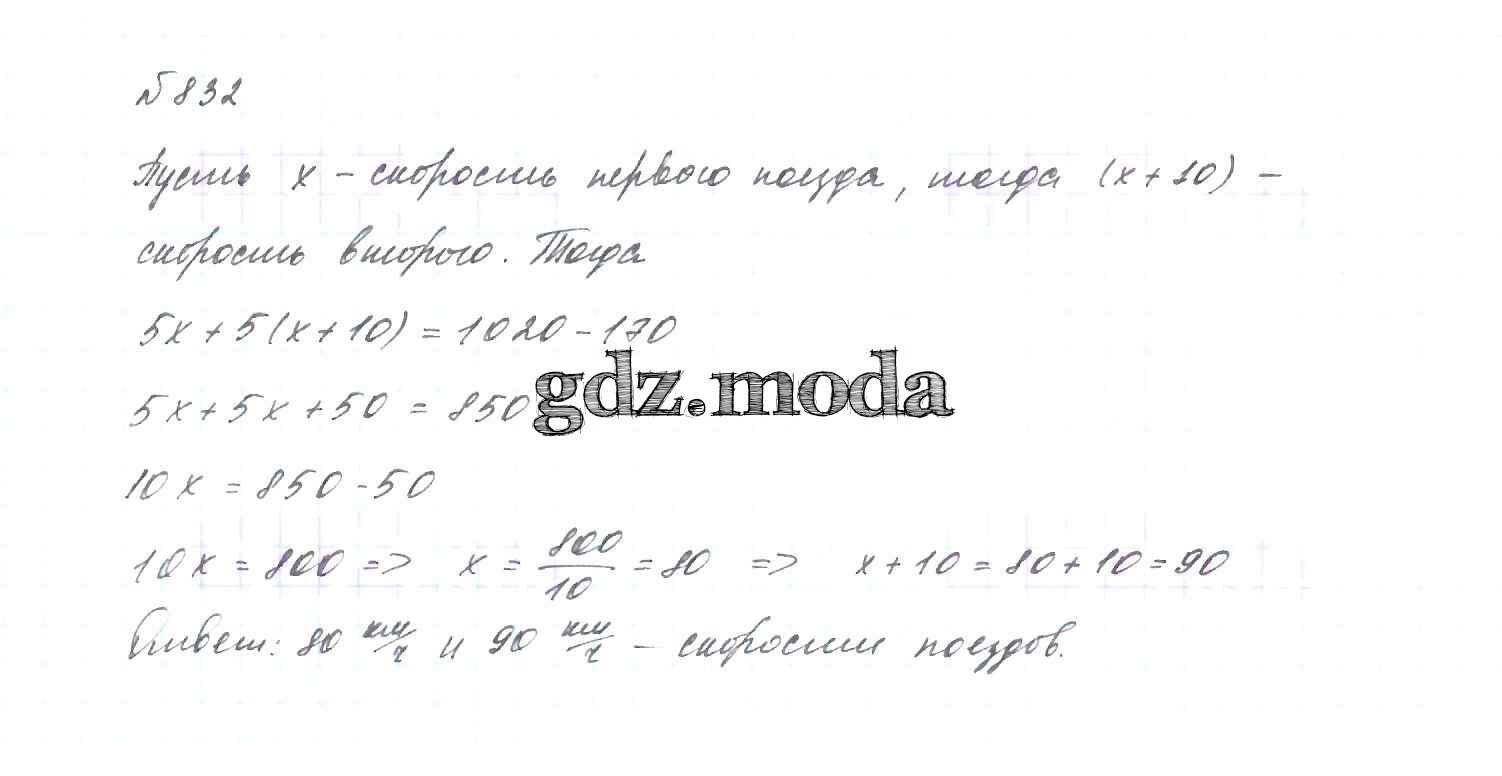 №832
Пусть x – скорость первого поезда, тогда (x+10) –
скорость второго. Тогда
5x+5(x+10)=1020-170
gdz.moda
5x+5x+50=850
10x=850-50
10x=800 => x=800/10=80 => x+10=80+10=90
Ответ: 80 км/ч и 90 км/ч – скорости поездов.